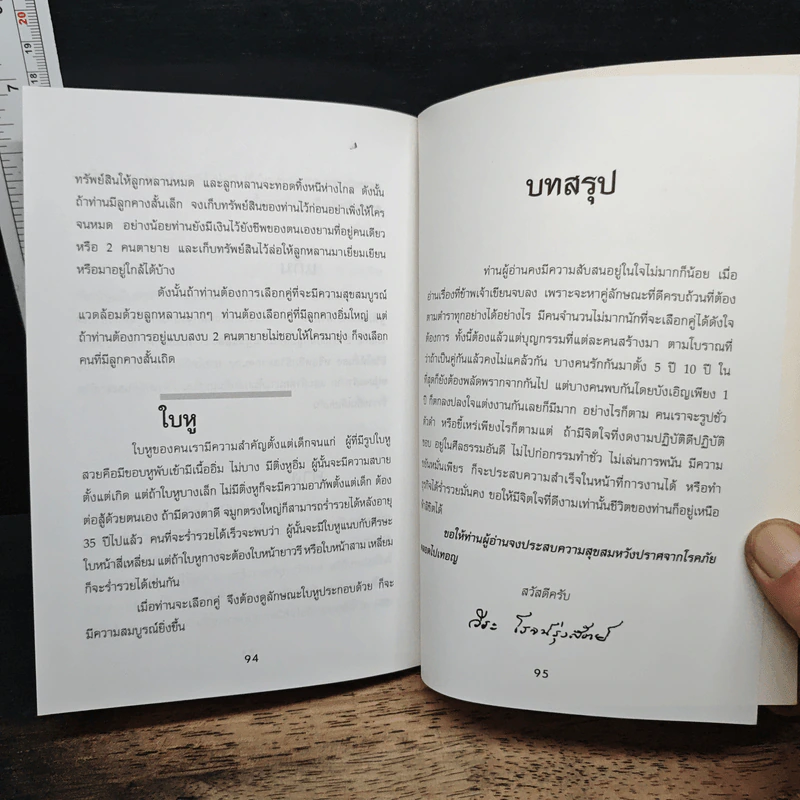 ทรัพย์สินให้ลูกหลานหมด และลูกหลานจะทอดทิ้งหนีห่างไกล ดังนั้น
ถ้าท่านมีลูกคางสั้นเล็ก จงเก็บทรัพย์สินของท่านไว้ก่อนอย่าเพิ่งให้ใคร
จนหมด อย่างน้อยท่านยังมีเงินไว้ยังชีพของตนเองยามที่อยู่คนเดียว
หรือ 2 คนตายาย และเก็บทรัพย์สินไว้ล่อให้ลูกหลานมาเยี่ยมเยียน
หรือมาอยู่ใกล้ได้บ้าง
ดังนั้นถ้าท่านต้องการเลือกคู่ที่จะมีความสุขสมบูรณ์
แวดล้อมด้วยลูกหลานมากๆ ท่านต้องเลือกคู่ที่มีลูกคางอิ่มใหญ่ แต่
ถ้าท่านต้องการอยู่แบบสงบ 2 คนตายายไม่ชอบให้ใครมายุ่ง ก็จงเลือก
คนที่มีลูกคางสั้นเถิด
ใบหู
ใบหูของคนเรามีความสำคัญตั้งแต่เด็กจนแก่ ผู้ที่มีรูปใบหู
สวยคือมีขอบหูพับเข้ามีเนื้ออิ่ม ไม่บาง มีติ่งหูอิ่ม ผู้นั้นจะมีความสบาย
ตั้งแต่เกิด แต่ถ้าใบหูบางเล็ก ไม่มีติ่งหูก็จะมีความอาภัพตั้งแต่เด็ก ต้อง
ต่อสู้ด้วยตนเอง ถ้ามีดวงตาดี จมูกตรงใหญ่ก็สามารถร่ำรวยได้หลังอายุ
35 ปีไปแล้ว คนที่จะร่ำรวยได้เร็วจะพบว่า ผู้นั้นจะมีใบหูแนบกับศีรษะ
ใบหน้าสี่เหลี่ยม แต่ถ้าใบหูกางจะต้องใบหน้ายาวรี หรือใบหน้าสามเหลี่ยม
ก็จะร่ำรวยได้เช่นกัน
เมื่อท่านจะเลือกคู่ จึงต้องดูลักษณะใบหูประกอบด้วย ก็จะ
มีความสมบูรณ์ยิ่งขึ้น
94
บทสรุป
ท่านผู้อ่านคงมีความสับสนอยู่ในใจไม่มากก็น้อย เมื่อ
อ่านเรื่องที่ข้าพเจ้าเขียนจบลง เพราะจะหาคู่ลักษณะที่ดีครบถ้วนที่ต้อง
ตามตำราทุกอย่างได้อย่างไร มีคนจำนวนไม่มากนักที่จะเลือกคู่ได้ดังใจ
ต้องการ ทั้งนี้ต้องแล้วแต่บุญกรรมที่แต่ละคนสร้างมา ตามโบราณที่
ว่าถ้าเป็นคู่กันแล้วคงไม่แคล้วกัน บางคนรักกันมาตั้ง 5 ปี 10 ปี ใน
ที่สุดก็ยังต้องพลัดพรากจากกันไป แต่บางคนพบกันโดยบังเอิญเพียง 1
ปี ก็ตกลงปลงใจแต่งงานกันเลยก็มีมาก อย่างไรก็ตาม คนเราจะรูปชั่ว
ตัวดำ หรือขี้เหร่เพียงไรก็ตามแต่ ถ้ามีจิตใจที่งดงามปฏิบัติดีปฏิบัติ
ชอบ อยู่ในศีลธรรมอันดี ไม่ไปก่อกรรมทำชั่ว ไม่เล่นการพนัน มีความ
ขยันหมั่นเพียร ก็จะประสบความสำเร็จในหน้าที่การงานได้ หรือทำ
ธุรกิจได้ร่ำรวยมั่นคง ขอให้มีจิตใจที่ดีงามเท่านั้นชีวิตของท่านก็อยู่เหนือ
ลิขิตได้
ขอให้ท่านผู้อ่านจงประสบความสุขสมหวังปราศจากโรคภัย
ตลอดไปเทอญ
สวัสดีครับ
วีระ โรจน์รุ่งสัตย์
95
7
18
19
20